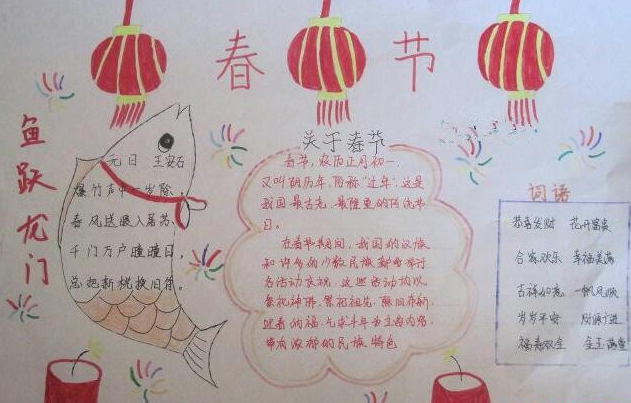 春节
鱼跃龙门
元日 王安石
爆竹声中一岁除,
春风送暖入屠苏,
千门万户曈曈日,
总把新桃换旧符。
关于春节
春节,农历正月初一,
又叫阴历年,俗称“过年”,这是
我国最古老、最隆重的传统节
日。
在春节期间,我国的汉族
和许多的少数民族都要举行
各活动庆祝,这些活动均以
祭祀神佛、祭祀祖先、除旧布新、
迎春纳福、
带有浓郁的民族特色
词语
恭喜发财 花开富贵
合家欢乐 幸福美满
吉祥如意 一帆风顺
岁岁平安 财源广进
福寿双全 金玉满堂